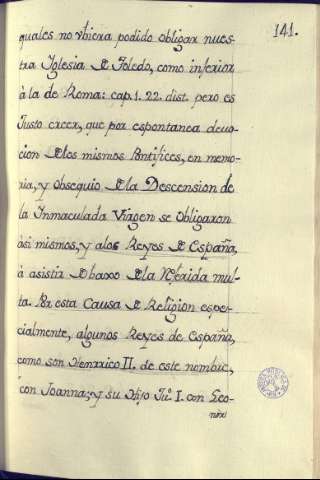 141.
quales no vbiera podido obligar nues-
tra Iglesia de Toledo, como inferior
à la de Roma: cap. 1. 22. dist. pero es
Justo creer, que por espontanea devo-
cion de los mismos Pontifices, en memo-
ria, y obsequio de la Descension de
la Inmaculada Virgen se obligaron
àsi mismos, y alos Reyes de España,
à asistir debaxo de la referida mul-
ta. Por esta Causa de Religion espe-
cialmente, algunos Reyes de España,
como son Henrrico II. de este nombre,
con Joanna; y su Hijo Ju.º I. con Leo-
nor